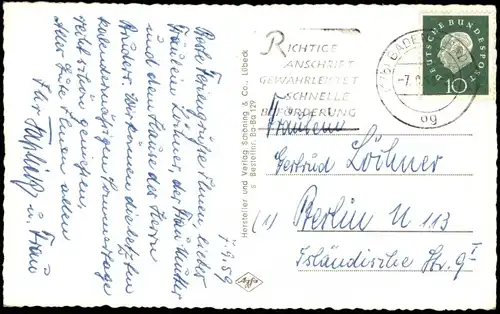 7.9.59
Beste Feriengrüsse Ihnen, liebes
Fräulein Löhner, der Frau Mutter
und dem Hause der Herrn
Bruders. Wir können die letzten
kalendermäßigen Sommertage
reichlich genießen.
Alles Gute Ihnen allen
Ihr
u. Frau
Hersteller und Verlag Schöning & Co., Lübeck
s Bestellnr. Ba-Ba 129
Agfa
RICHTIGE
ANSCHRIFT
GEWÄHRLEISTET
SCHNELLE
BEFÖRDERUNG
BADEN
-7.9.
og
DEUTSCHE BUNDESPOST
10
Fräulein
Gertrud Löhner
(1) Berlin N 113
Isländische Str. 9 I